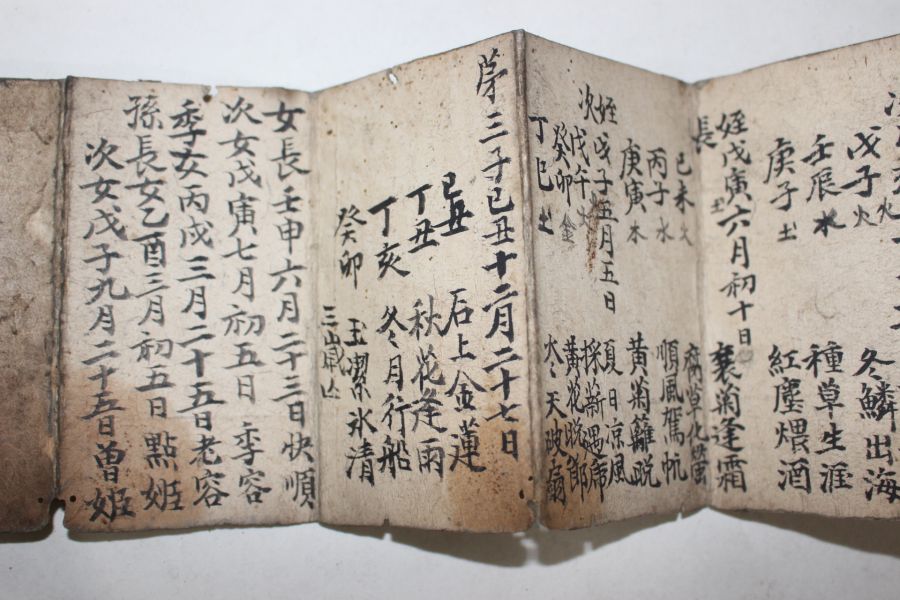 戊子 火
冬鱗出海
壬辰 水
種草生涯
庚子 土
紅塵煨酒
姪戊寅六月初十日
長 土
襄菊逢霜
己未 火
腐草化螢
丙子 水
順風駕帆
庚寅 木
黄菊籬脱
姪戊子五月五日
夏日凉風
次戊午 火
採薪遇席
癸卯 金
黄花晩節
丁巳 土
冬天破扇
第三子己丑十二月二十七日
己丑
石上金蓮
丁丑
秋花逢雨
丁亥
冬月行船
癸卯
玉潔氷清
三歲亡
女長壬申六月二十三日快順
次女戊寅七月初五日 季容
季女丙戌三月二十五日老容
孫長女乙酉三月初五日 點姬
次女戊子九月二十五日曾姬